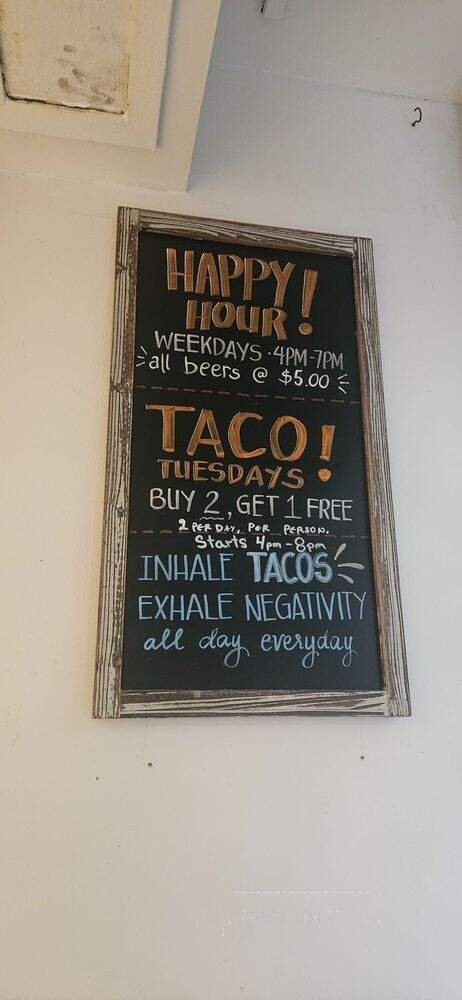 HAPPY!
HOUR!
WEEKDAYS · 4PM-7PM
all beers @ $5.00
TACO!
TUESDAYS
BUY 2, GET 1 FREE
2 PER DAY, PER PERSON.
Starts 4pm-8pm
INHALE TACOS
EXHALE NEGATIVITY
all day everyday